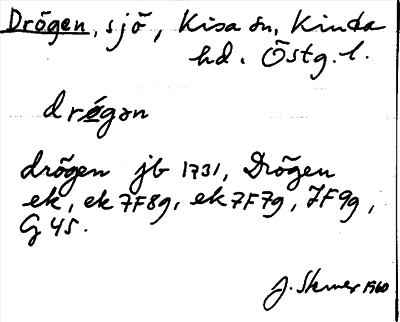 Drögen, sjö, Kisa sn, Kinda
hd. Östg. l.
drǿgən
drögen jb 1731, Drögen
ek, ek 7F8g, ek 7F7g, 7F9g,
G 45.
J. 1960